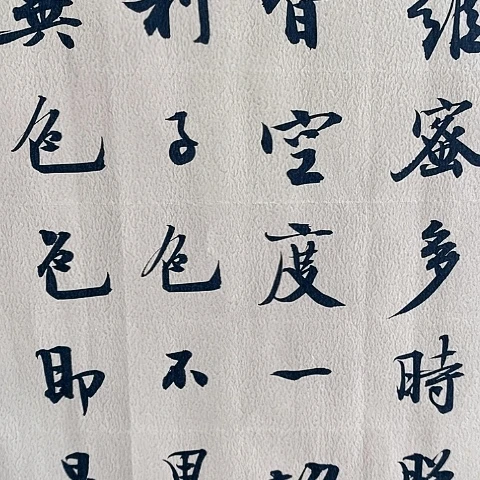 羅蜜多時照
皆空度一切
利子色不異
異色色即是